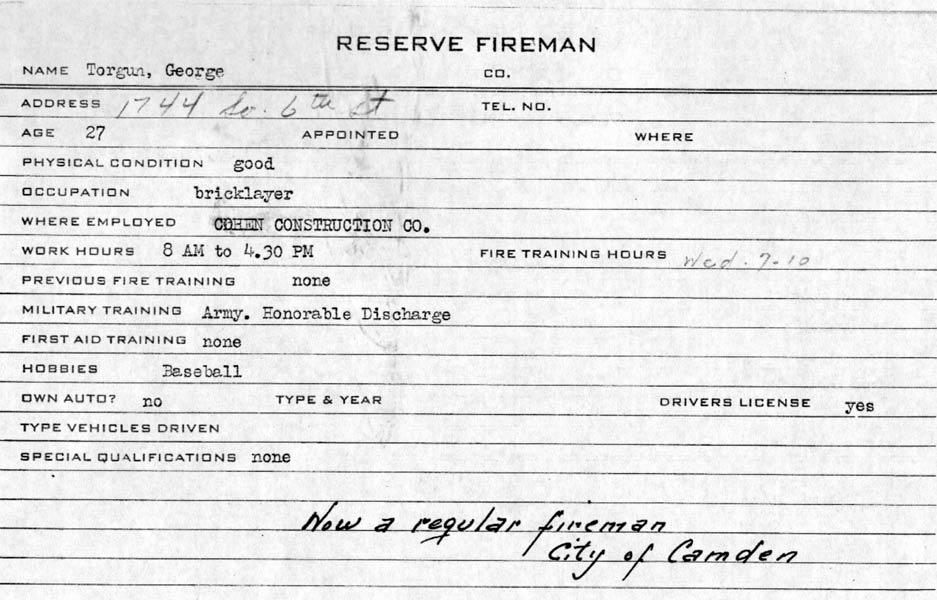 RESERVE FIREMAN
NAME Torgun, George CO.
ADDRESS 1744 So. 6th St TEL. NO.
AGE 27 APPOINTED WHERE
PHYSICAL CONDITION good
OCCUPATION bricklayer
WHERE EMPLOYED COHEN CONSTRUCTION CO.
WORK HOURS 8 AM to 4.30 PM FIRE TRAINING HOURS Wed. 7-10
PREVIOUS FIRE TRAINING none
MILITARY TRAINING Army. Honorable Discharge
FIRST AID TRAINING none
HOBBIES Baseball
OWN AUTO? no TYPE & YEAR DRIVERS LICENSE yes
TYPE VEHICLES DRIVEN
SPECIAL QUALIFICATIONS none
Now a regular fireman
City of Camden